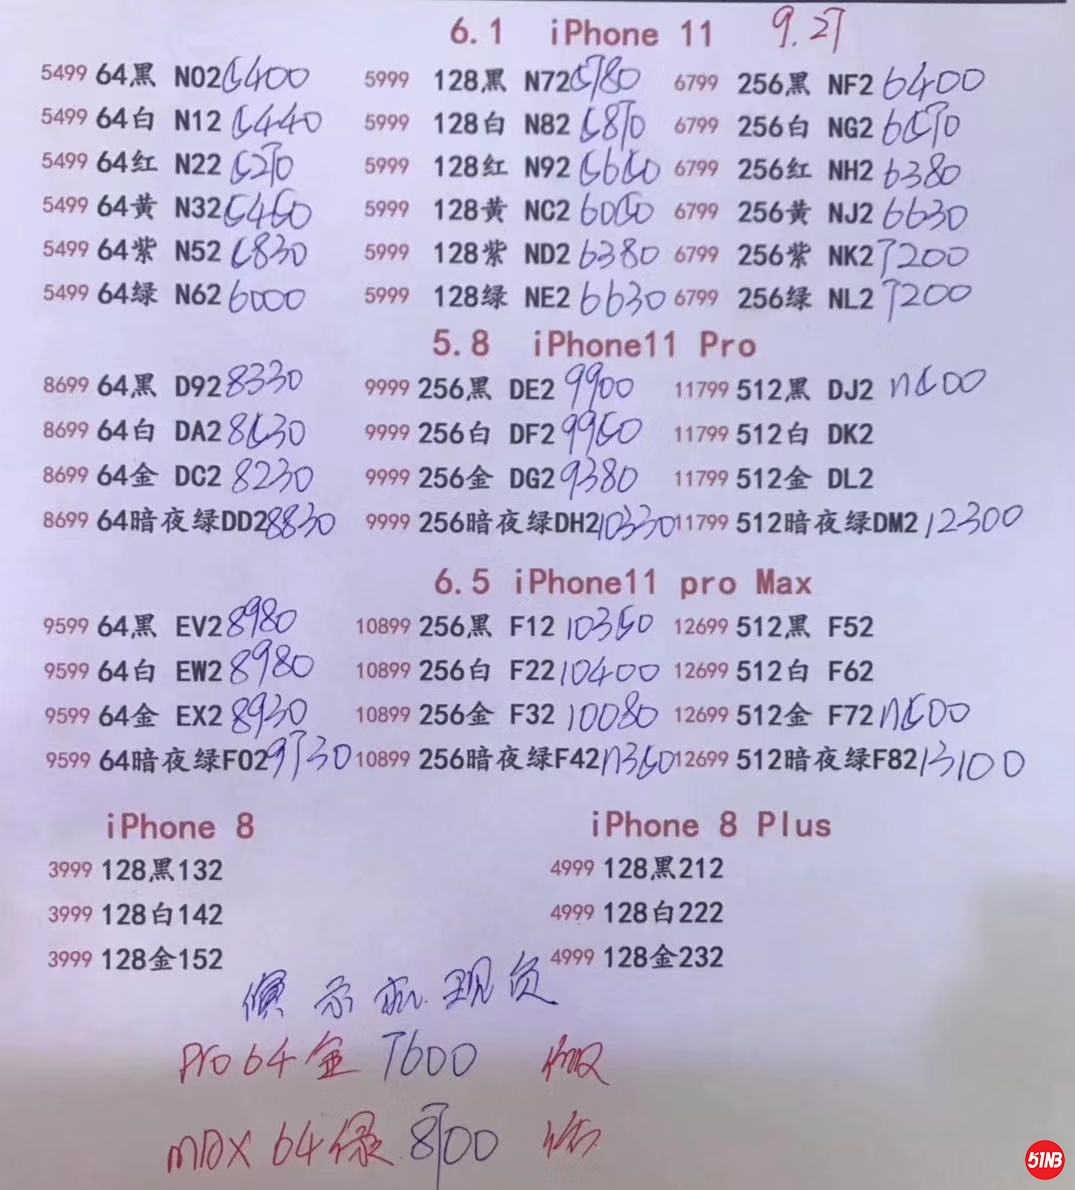 6.1 iPhone 11 9.27
5499 64黑 N02 5400 5999 128黑 N72 5780 6799 256黑 NF2 6400
5499 64白 N12 5440 5999 128白 N82 5870 6799 256白 NG2 6570
5499 64红 N22 5270 5999 128红 N92 5650 6799 256红 NH2 6380
5499 64黄 N32 5450 5999 128黄 NC2 6050 6799 256黄 NJ2 6630
5499 64紫 N52 5830 5999 128紫 ND2 6380 6799 256紫 NK2 7200
5499 64绿 N62 6000 5999 128绿 NE2 6630 6799 256绿 NL2 7200
5.8 iPhone11 Pro
8699 64黑 D92 8330 9999 256黑 DE2 9900 11799 512黑 DJ2 11500
8699 64白 DA2 8530 9999 256白 DF2 9950 11799 512白 DK2
8699 64金 DC2 8230 9999 256金 DG2 9380 11799 512金 DL2
8699 64暗夜绿DD2 8830 9999 256暗夜绿DH2 10330 11799 512暗夜绿DM2 12300
6.5 iPhone11 pro Max
9599 64黑 EV2 8980 10899 256黑 F12 10350 12699 512黑 F52
9599 64白 EW2 8980 10899 256白 F22 10400 12699 512白 F62
9599 64金 EX2 8930 10899 256金 F32 10080 12699 512金 F72 11500
9599 64暗夜绿F02 9730 10899 256暗夜绿F42 11350 12699 512暗夜绿F82 13100
iPhone 8 iPhone 8 Plus
3999 128黑132 4999 128黑212
3999 128白142 4999 128白222
3999 128金152 4999 128金232
示机 现
Pro 64金 7600
MAX 64绿 8700
51NB